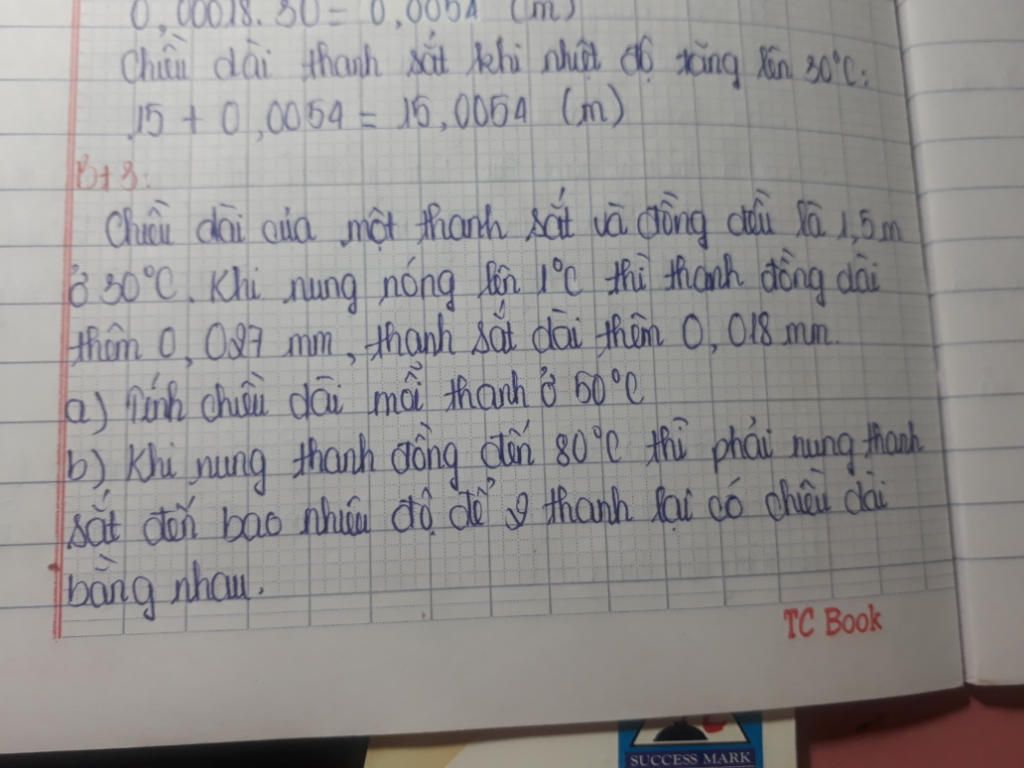 0,00018.30 = 0,0054 (m)
Chiều dài thanh sắt khi nhiệt độ tăng lên 30°C:
15 + 0,0054 = 15,0054 (m)
Bt 3:
Chiều dài của một thanh sắt và đồng đều là 1,5m
ở 30°C. Khi nung nóng lên 1°C thì thanh đồng dài
thêm 0,027 mm, thanh sắt dài thêm 0,018 mm.
a) Tính chiều dài mỗi thanh ở 50°C
b) Khi nung thanh đồng đến 80°C thì phải nung thanh
sắt đến bao nhiêu độ để 2 thanh lại có chiều dài
bằng nhau.
TC Book
SUCCESS MARK